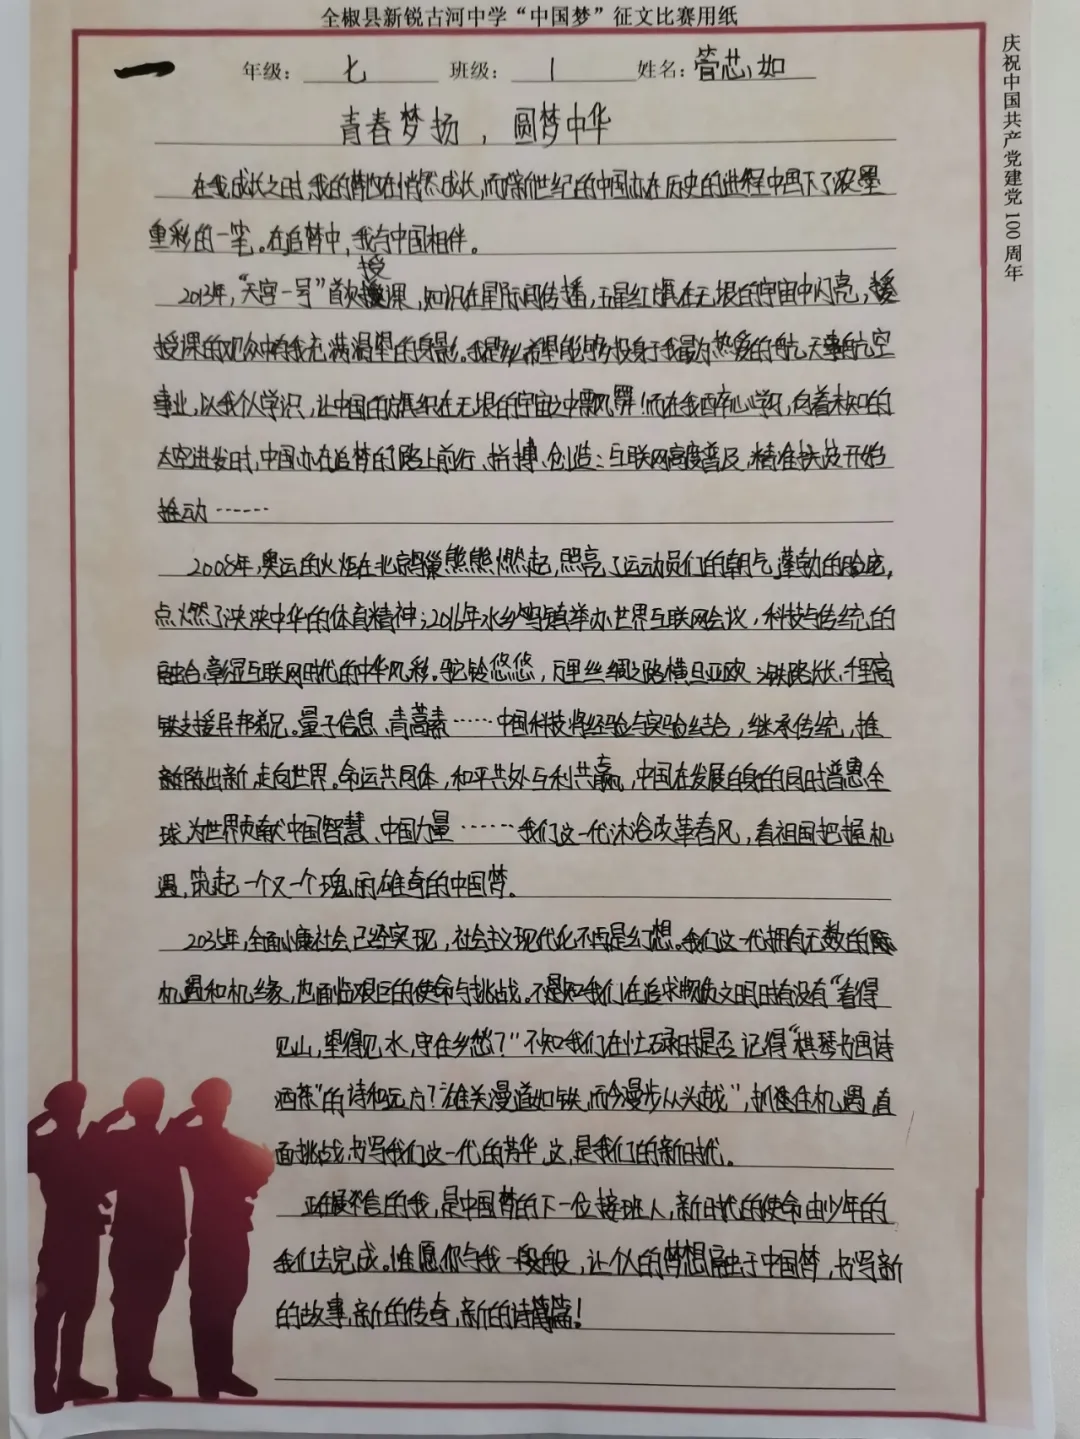 全椒县新锐古河中学“中国梦”征文比赛用纸
庆祝中国共产党建党100周年
一
年级：七 班级：1 姓名：管芯如
青春梦扬，圆梦中华
在我成长之时，我的梦也在悄然成长，而新世纪的中国亦在历史的进程中留下了浓墨
重彩的一笔。在追梦中，我与中国相伴。
授
2013年，“天宫一号”首次课，知识在星际间传播，五星红旗在无垠的宇宙中闪亮，
授课的观众中有我充满渴望的身影。我是多希望能够投身于我最为热爱的航天事航空
事业，以我个人学识，让中国的旗帜在无垠的宇宙之中飘舞！而在我醉心学习，向着未知的
太空进发时，中国亦在追梦的路上前行、拼搏、创造：互联网高度普及，精准扶贫开始
推动……
2008年，奥运的火炬在北京鸟巢熊熊燃起，照亮了运动员们的朝气蓬勃的脸庞，
点燃了泱泱中华的体育精神；2016年水乡乌镇举办世界互联网会议，科技与传统的
融合，彰显互联网时代的中华风彩。驼铃悠悠，万里丝绸之路横旦亚欧；铁路长长，千里高
铁支援异邦弟兄。量子信息、青蒿素……中国科技将经验与实验结合，继承传统，推
陈出新，走向世界。命运共同体，和平共处，互利共赢，中国在发展自身的同时普惠全
球，为世界贡献中国智慧、中国力量……我们这一代沐浴改革春风，看祖国把握机
遇，筑起一个又一个瑰丽雄奇的中国梦。
2035年，全面小康社会已经实现，社会主义现代化不再是幻想。我们这一代拥有无数的
机遇和机缘，也面临艰巨的使命与挑战。不知我们在追求物质文明时有没有“看得
见山，望得见水，守住乡愁？”不知我们在忙碌时是否记得“棋琴书画诗
酒茶”的诗和远方？“雄关漫道如铁，而今漫步从头越”，抓住机遇，直
面挑战，书写我们这一代的芳华，这，是我们的新时代。
的我，是中国梦的下一位接班人，新时代的使命由少年的
我们去完成。惟愿你与我一般，让个人的梦想融于中国梦，书写新
的故事，新的传奇，新的诗篇！